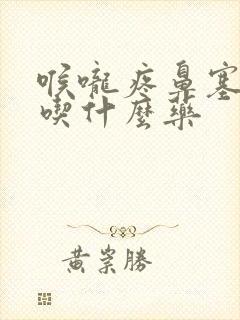 喉嚨疼鼻塞
喫什麼藥
黃崇勝